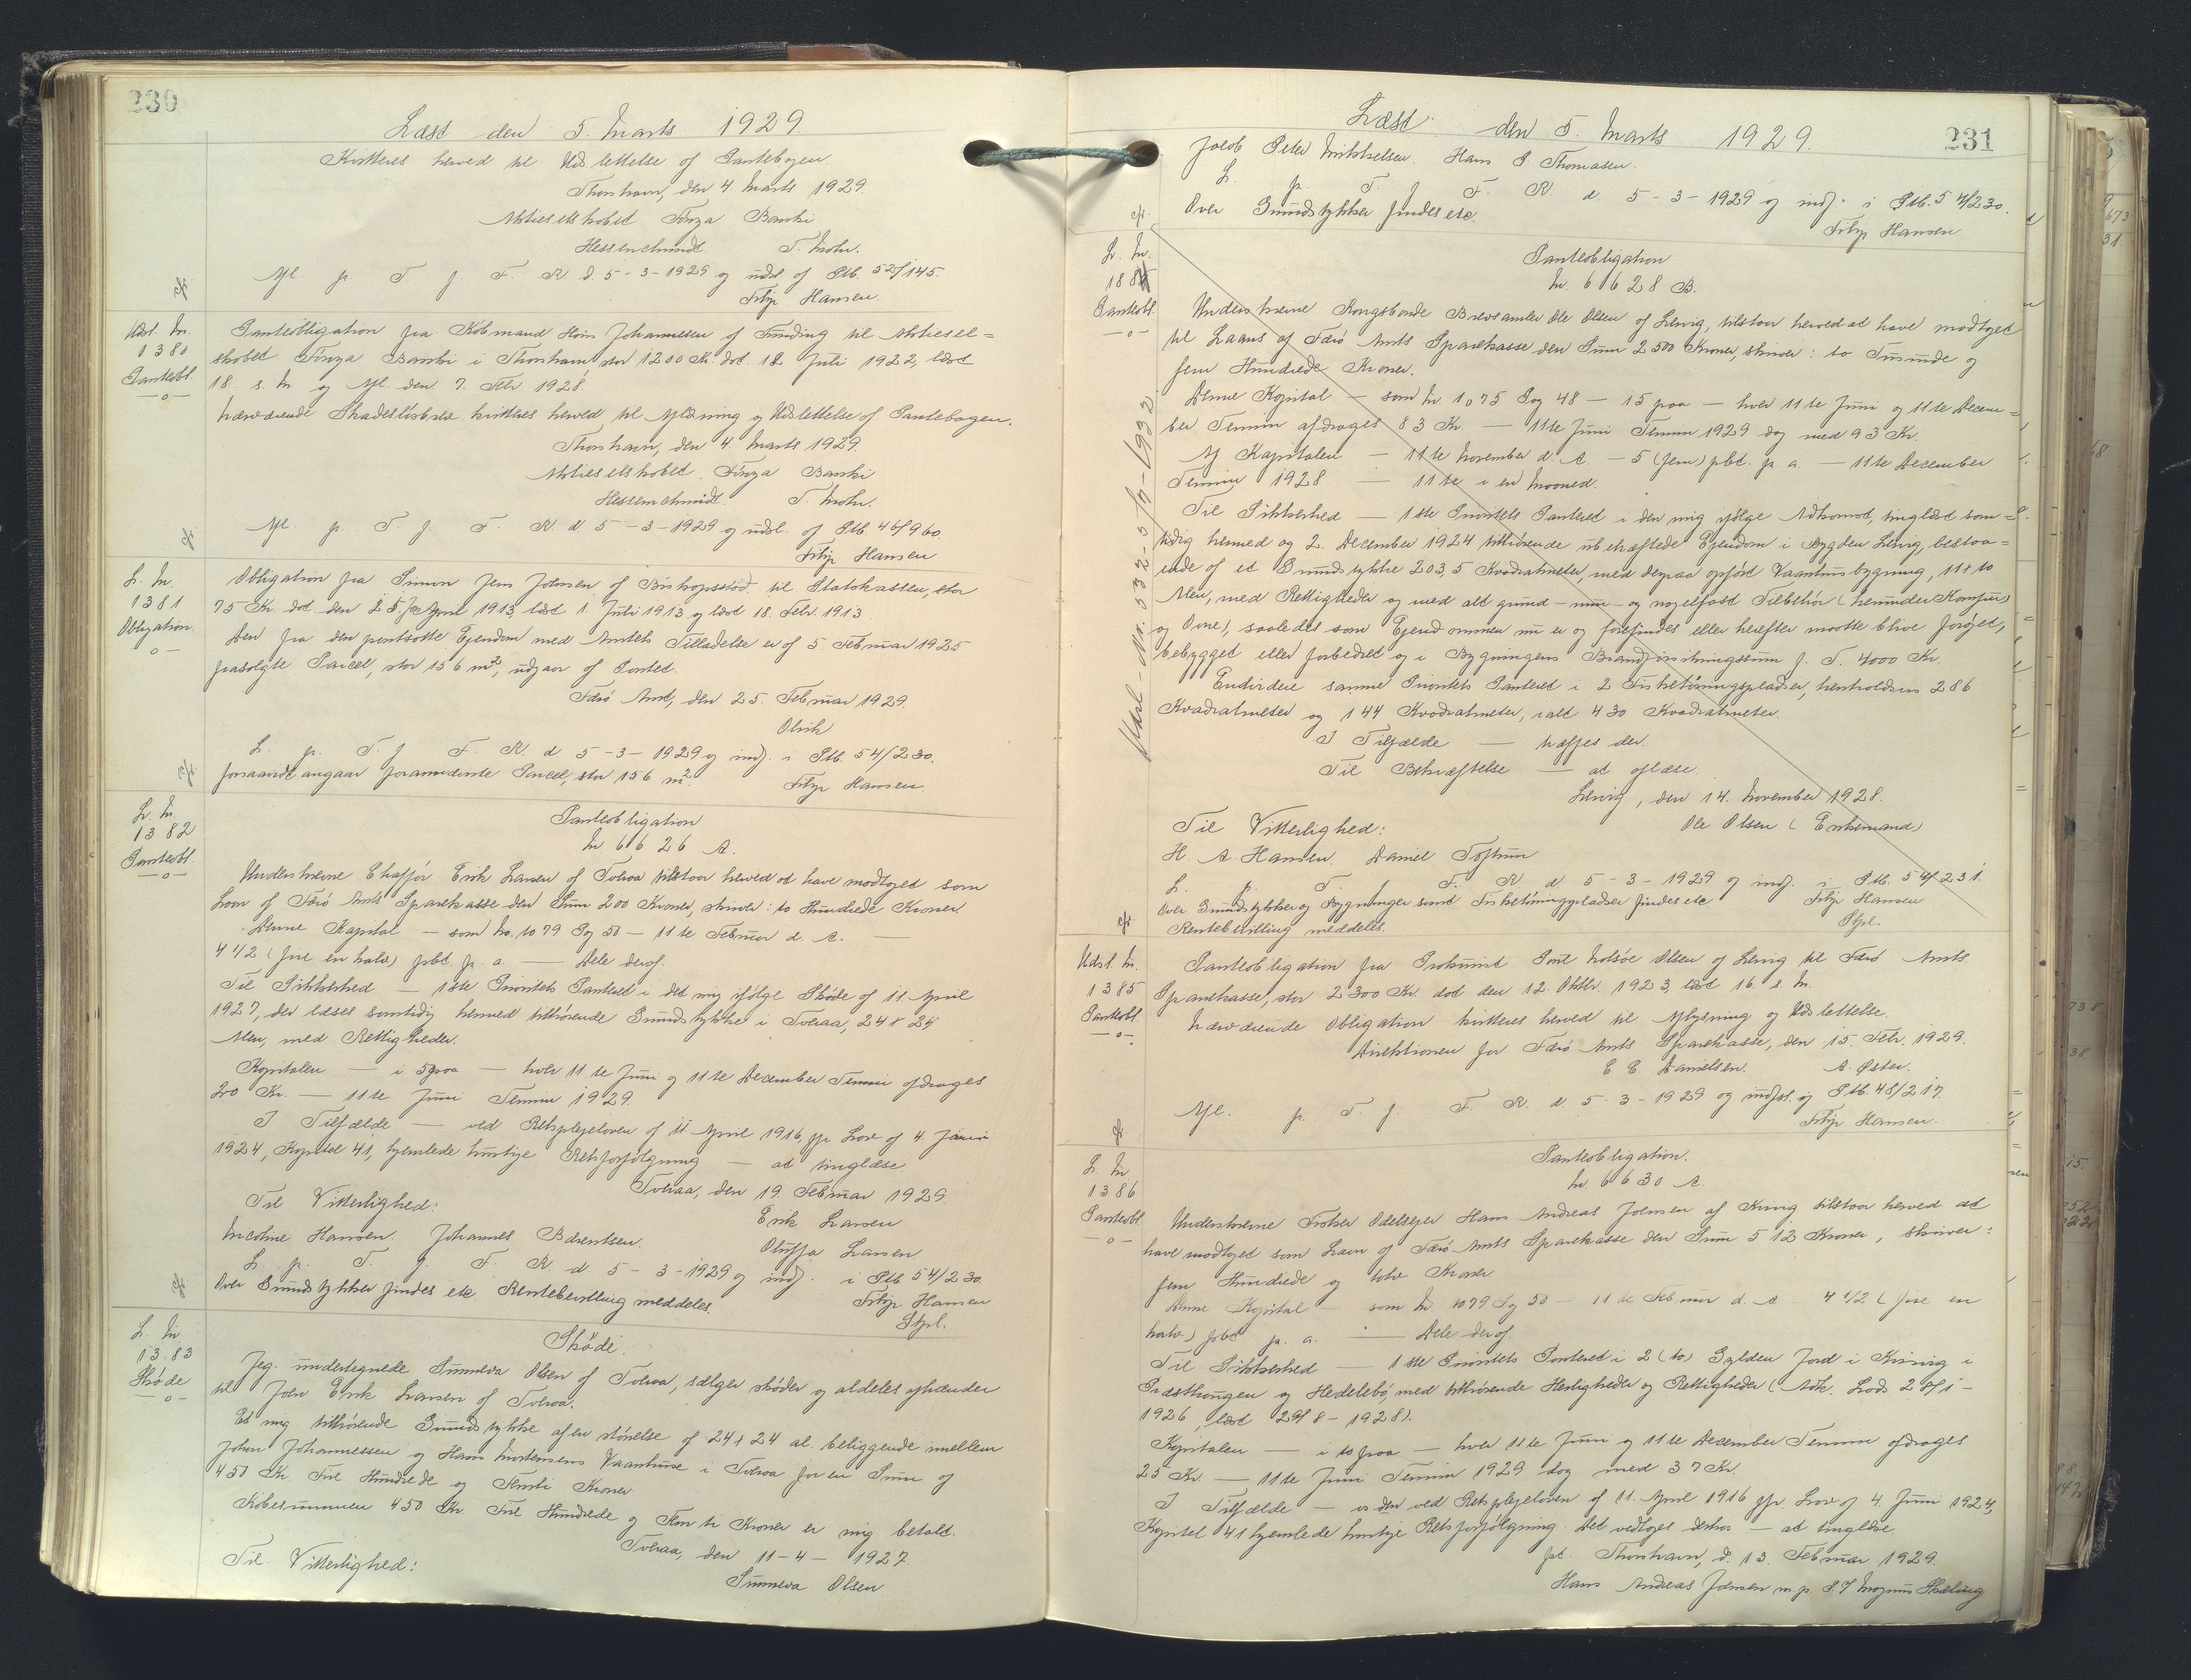 230
Læst den 5. Marts 1929.
Kvitteres herved til Udslettelse af Pantebogen.
Thorshavn, den 4 Marts 1929.
Aktieselskabet Føroya Banki
T. Mohr.
Afl. p. T. f. F. R. d. 5-3-1929 og udsl. af Ptb. 52/145.
Filip Hansen.
Udsl. Nr.
1380
Panteobl.
-o-
Panteobligation fra Købmand Hans Johannesen af Funding til Aktiesel=
skabet Føroya Banki i Thorshavn, stor 1200 Kr. dat. 12 Juli 1922, læst
18. s. M. og Afl. den 7. Febr. 1928.
Nærværende Skadesløsbrev kvitteres herved til Aflæsning og Udslettelse af Pantebogen.
Thorshavn, den 4 Marts 1929.
Aktieselskabet Føroya Banki
T. Mohr.
Afl. p. T. f. F. R. d. 5-3-1929 og udsl. af Ptb 46/960
Filip Hansen
L. Nr.
1381
Obligation.
-o-
Obligation fra Simon Jens Joensen af Bishopsstød til Statskassen, stor
75 Kr. dat. den April 1913, læst 1. Juli 1913 og læst 18 Febr. 1913
Den fra den pantsatte Ejendom med Amtets Tilladelse er af 5. Februar 1925
frasolgte Parcel, stor 156 m², udgaar af Pantet.
Færø Amt, den 25. Februar 1929.
L. p. T. f. F. R. d 5-3-1929 og indf. i Ptb. 54/230.
forsaavidt angaar foranmeldte Parcel, stor 156 m²
Filip Hansen.
L. Nr.
1382
Panteobl.
-o-
Panteobligation
Nr 6626 A.
Underskrevne Chaffør Erik Larsen af Tveraa tilstaar herved at have modtaget som
Laan af Færø Amts Sparekasse den Sum 200 Kroner, skriver: to Hundrede Kroner.
Denne Kapital — som No. 1079 Pag 50 — 11te Februar d. A. —
4 1/2 (fire en halv) pCt p. a. — Dele deraf.
Til Sikkerhed — 1ste Prioritets Panteret i det mig ifølge Skøde af 11 April
1927, der læses samtidig hermed tilhørende Grundstykke i Tveraa, 24 x 24
Alen, med Rettigheder.
Kapitalen — i 5 paa — hver 11te Juni og 11te December Termin afdrages
20 Kr. — 11te Juni Termin 1929.
I Tilfælde — ved Retsplejeloven af 11 April 1916, jfr Lov af 4. Juni
1924, Kapitel 41, hjemlede hurtige Retsforfølgning — at tinglæse
Tveraa, den 19. Februar 1929.
Til Vitterlighed:
Erik Larsen
Nicoline Hansen. Johannes Berentsen.
Oluffa Larsen
L. p. T. f. F. R d. 5-3-1929 og indf. i Ptb 54/230.
Over Grundstykker findes etc Rentebevilling meddeles.
Filip Hansen
Stpl.
L. Nr
1383
Skøde
-o-
Skøde.
Jeg undertegnede Sunneva Olsen af Tveraa, sælger skøder og aldeles afhænder
til Joen Erik Larsen af Tveraa.
Et mig tilhørende Grundstykke af en størrelse af 24 x 24 al. beliggende imellem
Johan Johannessen og Hans Mortensens Vaanhuse i Tveraa for en Sum af
450 Kr. Fire Hundrede og Femti Kroner.
Købesummen 450 Kr. Fire Hundrede og Femti Kroner er mig betalt.
Tveraa, den 11-4-1927
Til Vitterlighed:
Sunneva Olsen
231
Læst den 5. Marts 1929.
Jacob Peter Mikkelsen. Hans P Thomasen.
L. p. T. f F. R d. 5-3-1929 og indf. i Ptb. 54/230.
Over Grundstykker findes etc.
Filip Hansen
L. Nr.
1884
Panteobl.
-o-
Panteobligation
Nr. 6628 B.
Underskrevne Kongsbonde Brevsamler Ole Olsen af Lervig, tilstaar herved at have modtaget
til Laans af Færø Amts Sparekasse den Sum 2500 Kroner, skriver: to Tusinde og
fem Hundrede Kroner.
Denne Kapital — som Nr. 1075 Pag 48 — 15 paa — hver 11te Juni og 11te Decem=
ber Termin afdrages 83 Kr. — 11te Juni Termin 1929 dog med 93 Kr.
Af Kapitalen — 11te November d. A. — 5 (fem) pCt. p. a. — 11te December
Termin 1928 — 11te i en Maaned.
Til Sikkerhed — 1ste Prioritets Panteret i den mig ifølge Adkomst, tinglæst sam=
tidig hermed og 2. December 1924 tilhørende ubehæftede Ejendom i Bygden Lervig, bestaa=
ende af et Grundstykke 203,5 Kvadratmeter, med derpaa opført Vaaningsbygning, 11 x 10
Alen, med Rettigheder og med alt grund- mur- og nagelfast Tilbehør (herunder Komfur
og Ovne), saaledes som Ejendommen nu er og forefindes eller herefter maatte blive forøget,
bebygget eller forbedret og i Bygningens Brandforsikringssum f. T. 4000 Kr.
Endvidere samme Prioritets Panteret i 2 Fisketørringspladser, henholdsvis 286
Kvadratmeter og 144 Kvadratmeter, ialt 430 Kvadratmeter.
I Tilfælde — træffes der.
Til Bekræftelse — at aflæse.
Lervig, den 14. November 1928.
Til Vitterlighed:
Ole Olsen (Enkemand)
H. A. Hansen. Daniel Toftum
L. p. T. f. F. R. d. 5-3-1929 og indf. i Ptb. 54/231.
Over Grundstykker og Bygninger samt Fisketørringspladser findes etc
Filip Hansen
Rentebevilling meddeles.
Stpl.
Udsl. Nr.
1385
Panteobl.
-o-
Panteobligation fra Prokurist Poul Nolsøe Olsen af Lervig til Færø Amts
Sparekasse, stor 2300 Kr. dat den 12. Oktbr. 1923, læst 16. s. M.
Nærværende Obligation kvitteres herved til Aflysning og Udslettelse.
Direktionen for Færø Amts Sparekasse, den 15. Febr. 1929.
C. C. Danielsen. A. Øster.
Afl. p. T. f. F. R. d. 5-3-1929 og Ptb. 48/217.
Filip Hansen.
L. Nr
1386
Panteobl
-o-
Panteobligation.
Nr. 6630 A.
Underskrevne Trolser Odelsejer Hans Andreas Joensen af Kvivig tilstaar herved at
have modtaget som Laan af Færø Amts Sparekasse den Sum 512 Kroner, skriver:
fem Hundrede og tolv Kroner
Denne Kapital — som Nr 1079 Pag 50 — 11te Februar d. A — 4 1/2 (fire en
halv) pCt p. a. — Dele deraf
Til Sikkerhed — 1ste Prioritets Panteret i 2 (to) Gylden Jord i Kvivig i
og Hedelebø, med tilhørende Herligheder og Rettigheder (Adk. Lods
1926, læst 29/8-1928).
Kapitalen — i 10 paa — hver 11te Juni og 11te December Termin afdrages
25 Kr. — 11te Juni Termin 1929 dog med 37 Kr.
I Tilfælde — ved Retsplejeloven af 11. April 1916 jfr. Lov af 4. Juni 1924,
Kapitel 41 hjemlede hurtige Retsforfølgning. Det vedtages derhos — at tinglæse.
pt. Thorshavn, d. 13. Februar 1929.
Hans Andreas Joensen m. p.